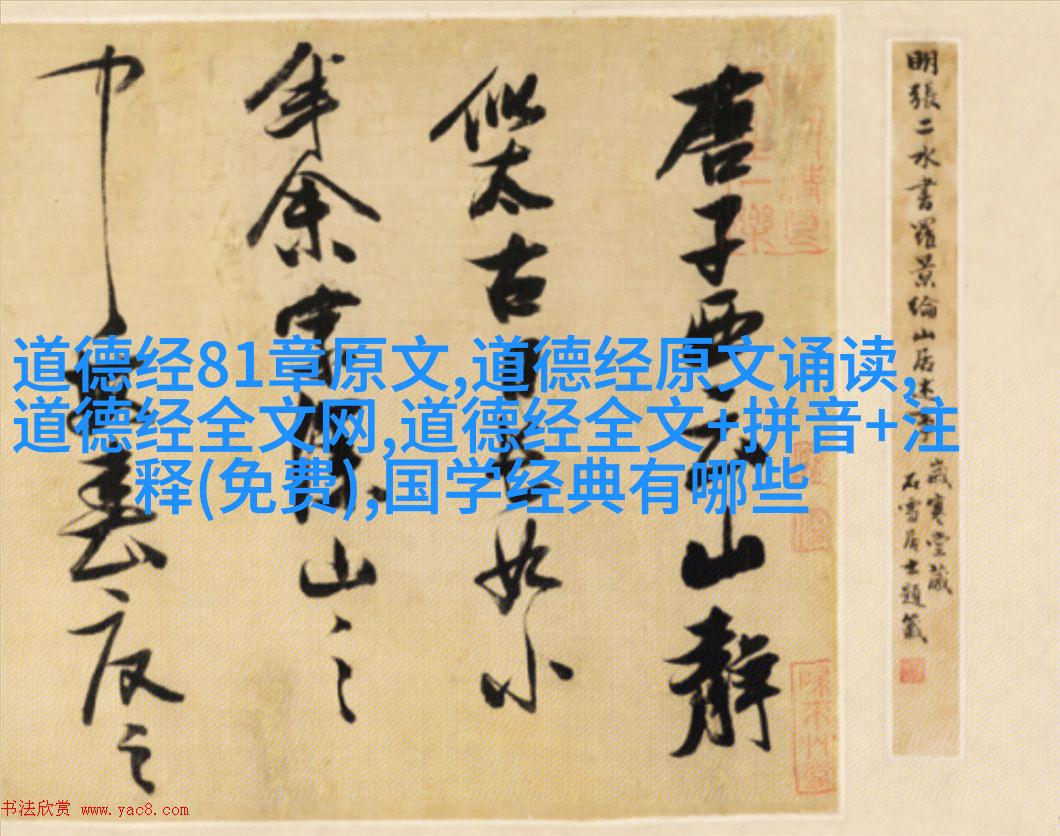 唐子西云山靜
似太古日長如小
年余家深山之
中每春夏之
明張二水書羅景綸山居
歲寒堂藏
石雪居士題籤
道德经81章原文,道德经原文诵读,
道德经全文网,道德经全文+拼音+注
释(免费),国学经典有哪些
书法欣赏 www.yac8.com